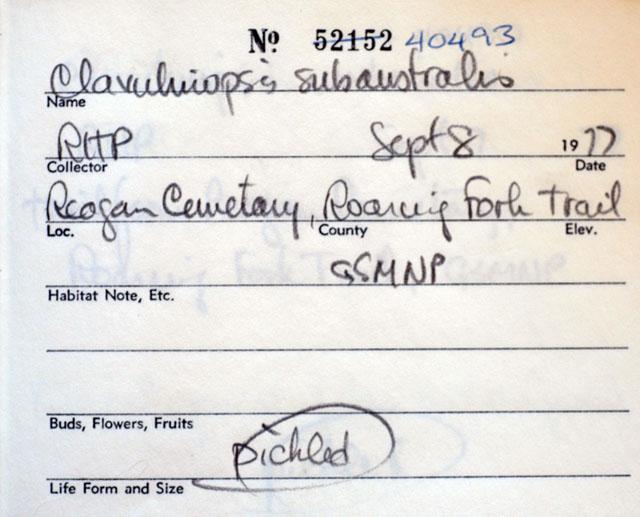 Nº 52152 40493
Clavulinopsis subaustralis
Name
RHP Sept 8 1977
Collector Date
Reagan Cemetary, Roaring Fork Trail
Loc. County Elev.
GSMNP
Habitat Note, Etc.
Buds, Flowers, Fruits
pickled
Life Form and Size